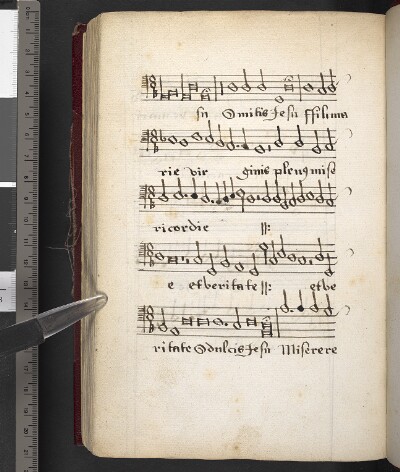 su O mitis Jesu ffili ma
rie vir ginis plenus mise
ricordie ||:
e et veritate ||: et ve
ritate O dulcis Jesu Miserere